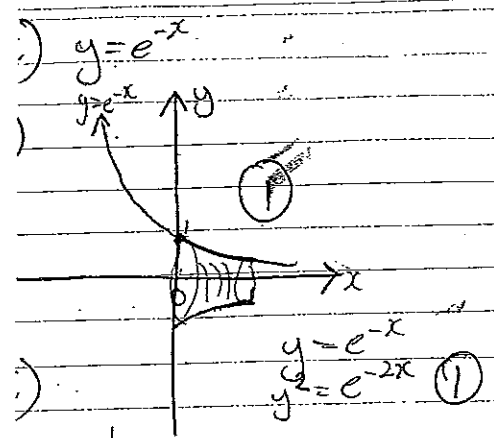 ) y = e^{-x}
y = e^{-x}
y
)
①
1
0
x
y = e^{-x}
) y^2 = e^{-2x} ①